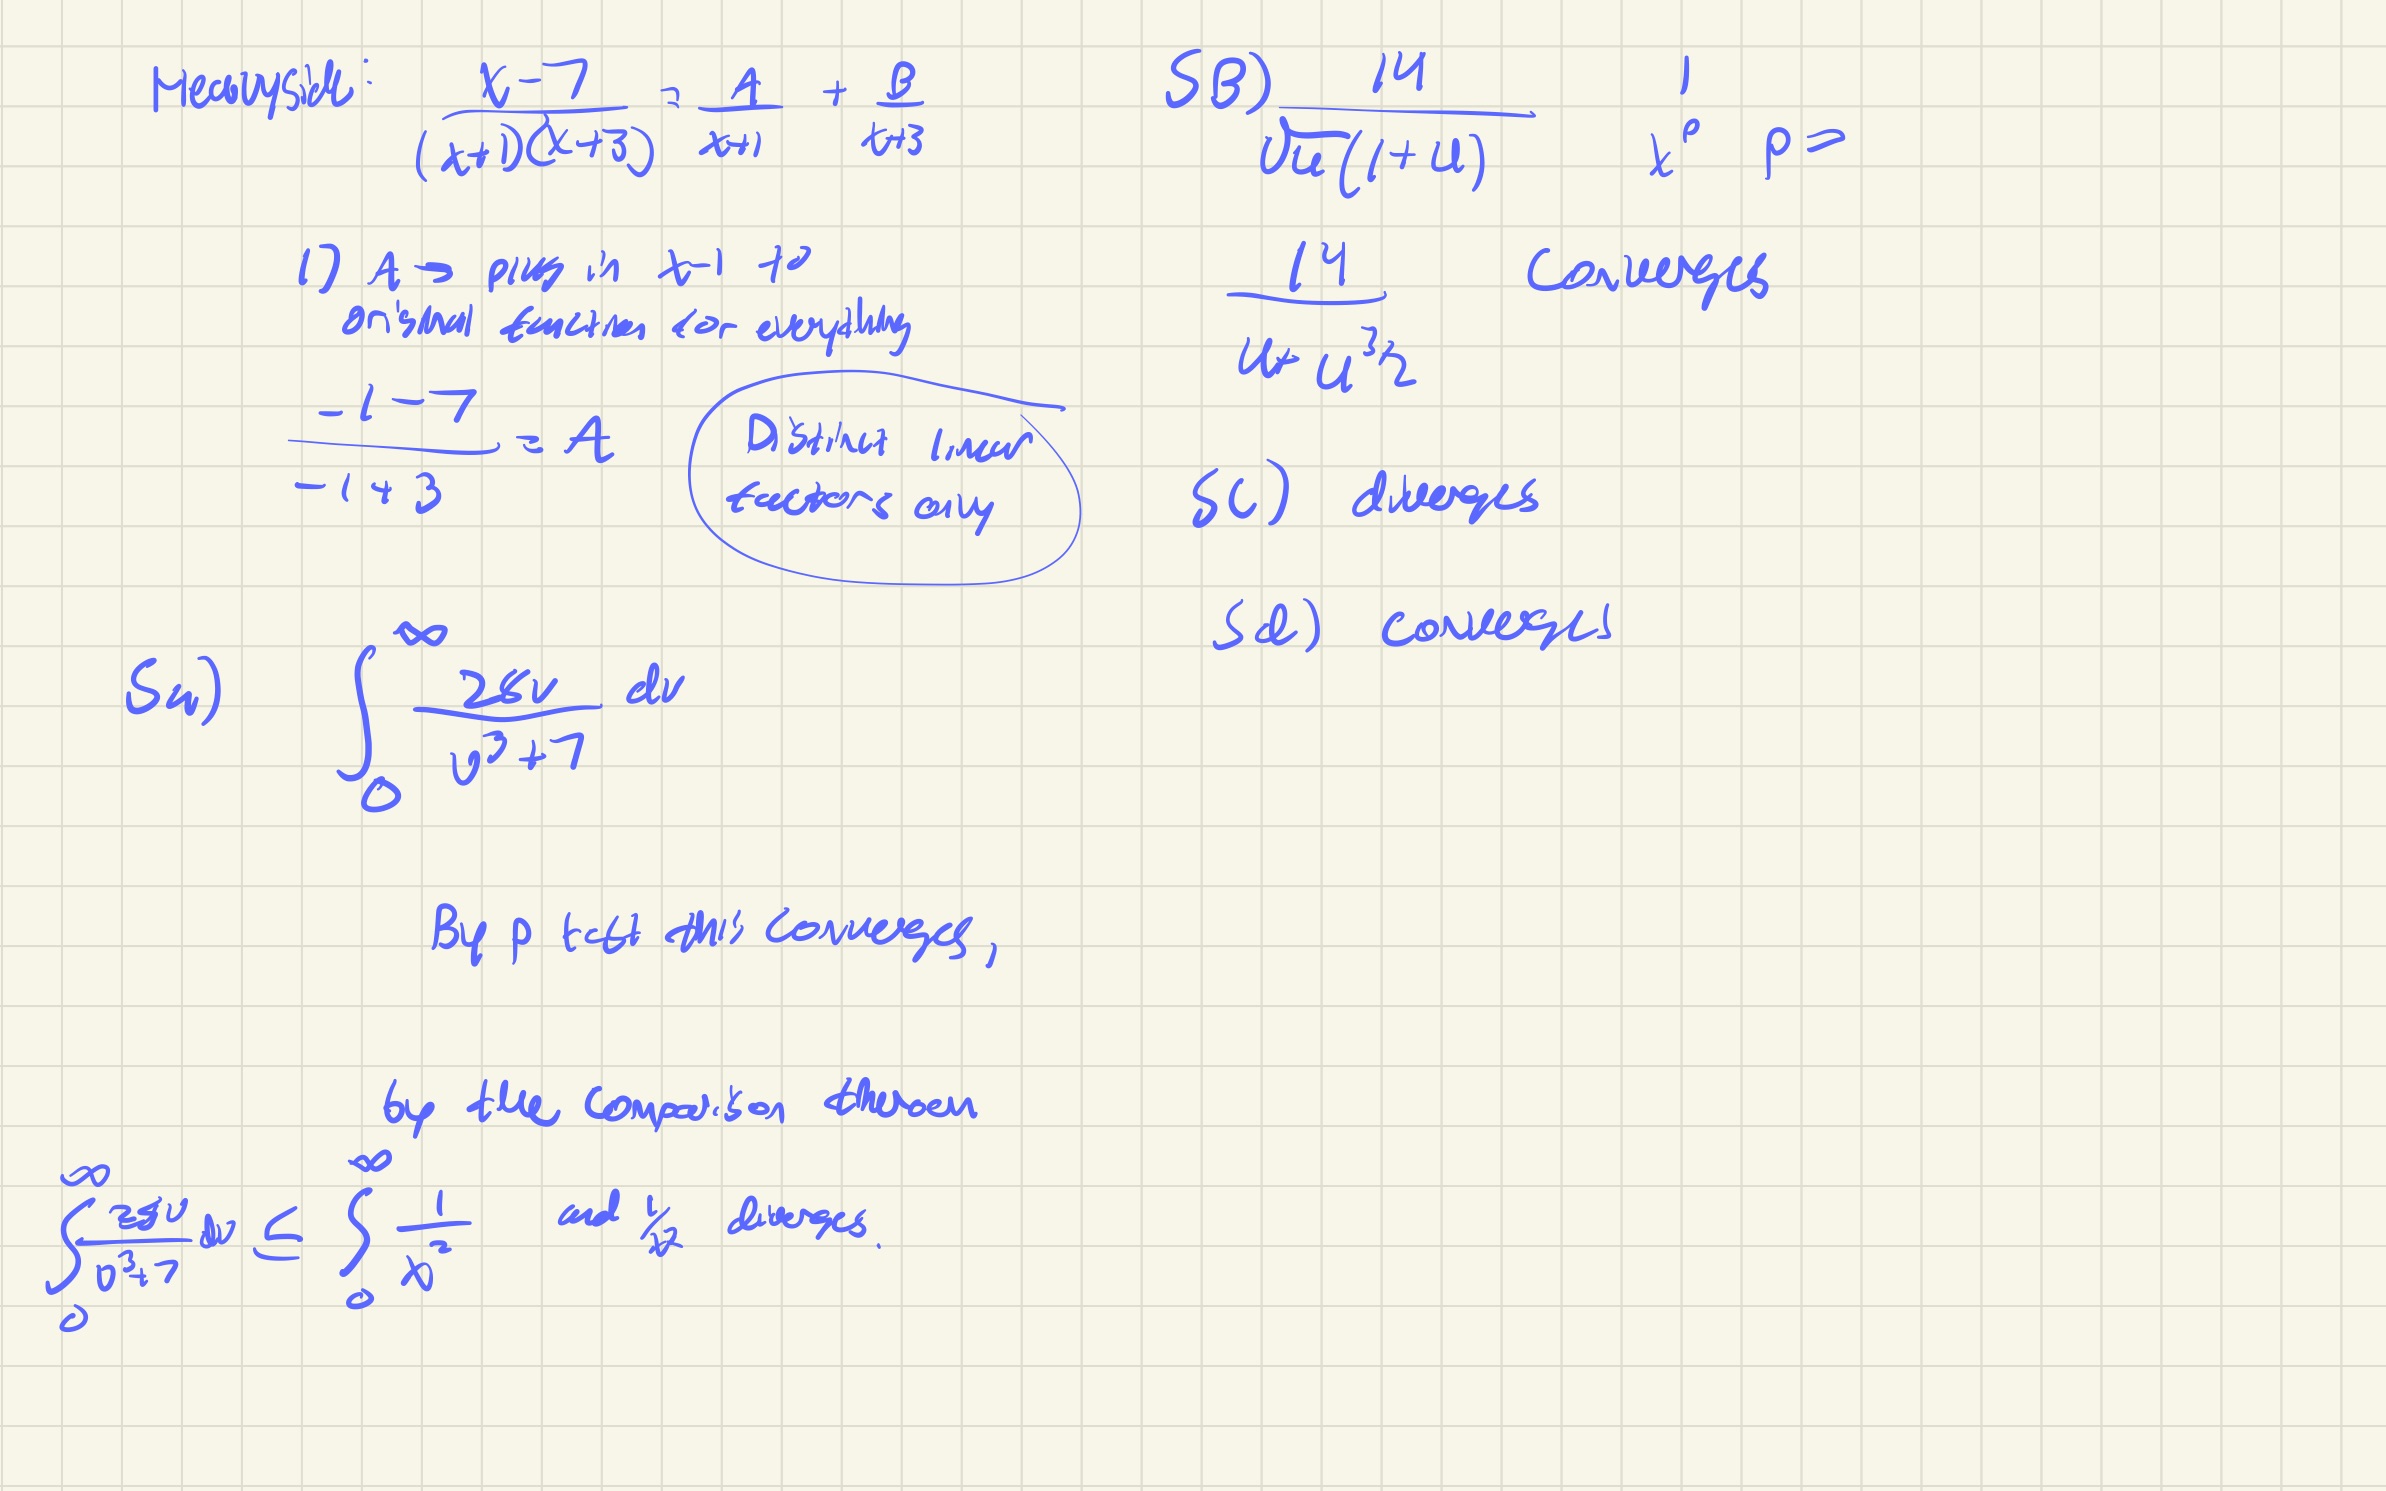 Heavyside: x-7/((x+1)(x+3)) = A/(x+1) + B/(x+3)
1) A → plug in x-1 to
original function for everything
(-1-7)/(-1+3) = A
Distinct linear
factors only
5a) ∫_0^∞ 28v/(v^3+7) dv
By p test this converges,
by the comparison theroem
∫_0^∞ 28v/(v^3+7) dv ≤ ∫_0^∞ 1/x^2 and 1/x^2 diverges.
5B) 14/(√u(1+u)) 1/x^p p=
14/(u+u^3/2) Converges
5c) diverges
5d) converges